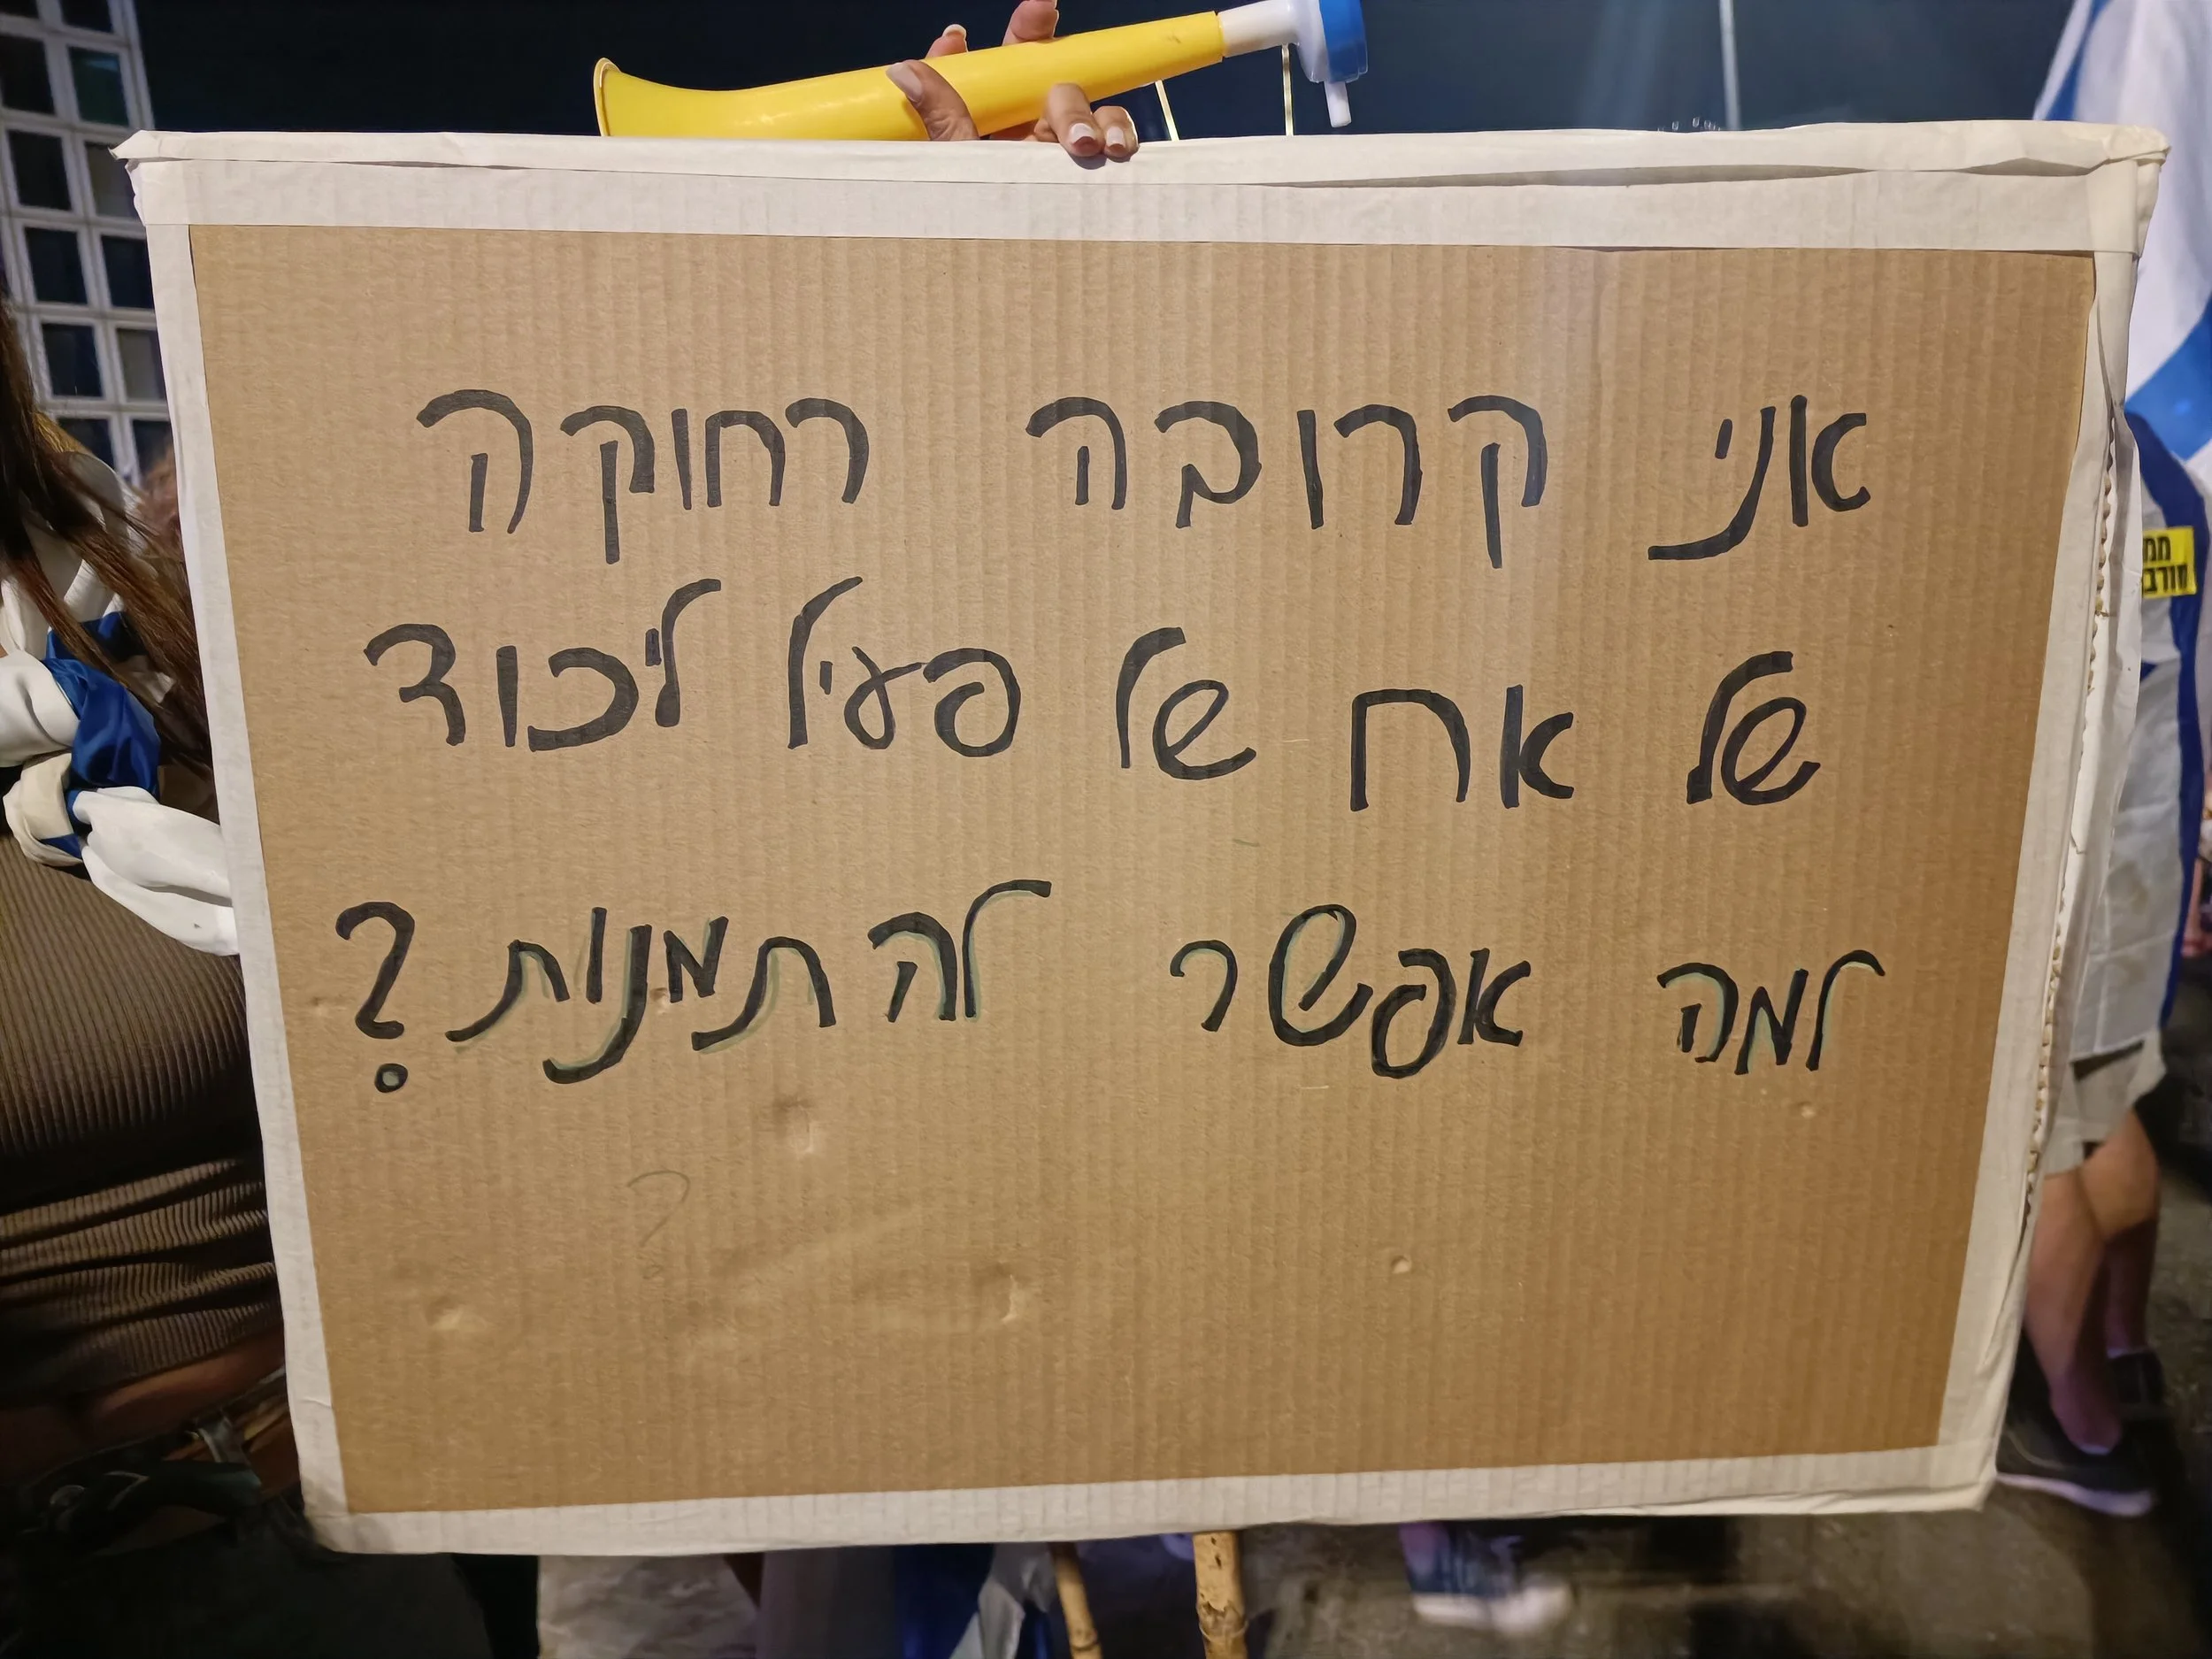 אני קרובה רחוקה
של אח של פעיל ליכוד
למה אפשר להתמנות?
?